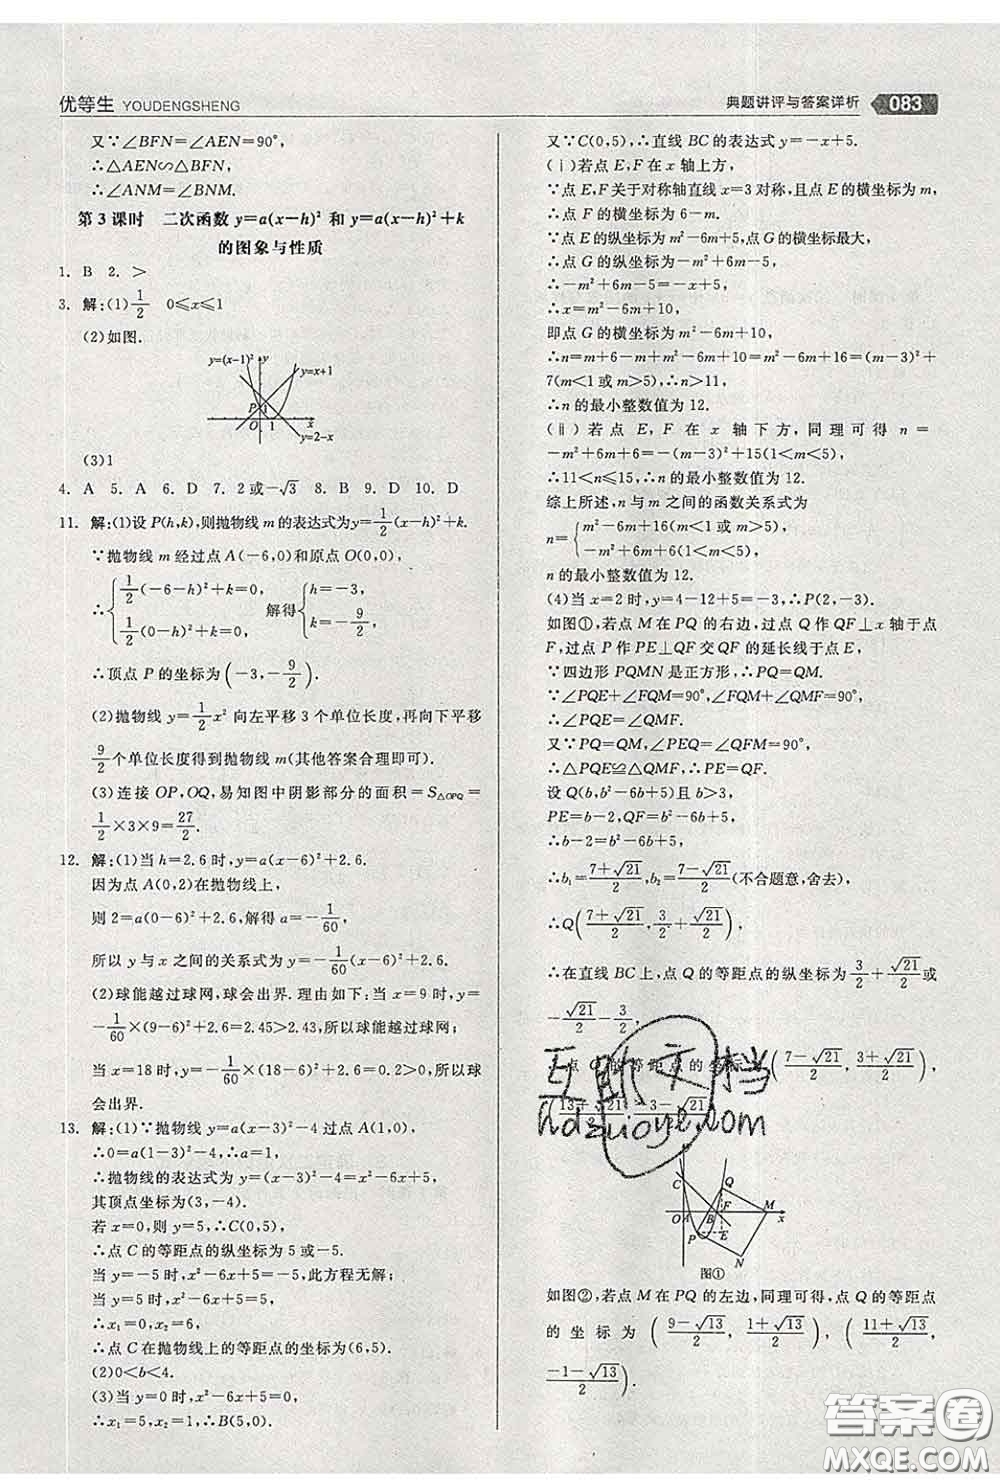 优等生 YOUDENGSHENG
典题讲评与答案详析 083
又∵∠BFN=∠AEN=90°,
∴△AEN∽△BFN,
∴∠ANM=∠BNM.
第3课时 二次函数 y=a(x-h)² 和 y=a(x-h)²+k
的图象与性质
1. B 2. >
3. 解:(1)1/2 0≤x≤1
(2)如图.
y=(x-1)² y y=x+1
P 1
O 1 x
y=2-x
(3)1
4. A 5. A 6. D 7. 2或-√3 8. B 9. D 10. D
11. 解:(1)设P(h,k),则抛物线m的表达式为y=1/2(x-h)²+k.
∵抛物线 m 经过点 A(-6,0)和原点 O(0,0),
∴{1/2(-6-h)²+k=0, 1/2(0-h)²+k=0, 解得{h=-3, k=-9/2.
∴顶点 P 的坐标为(-3,-9/2).
(2)抛物线 y=1/2x² 向左平移 3 个单位长度,再向下平移
9/2个单位长度得到抛物线 m(其他答案合理即可).
(3)连接 OP,OQ,易知图中阴影部分的面积=S△OPQ=
1/2×3×9=27/2.
12. 解:(1)当 h=2.6 时,y=a(x-6)²+2.6.
因为点 A(0,2)在抛物线上,
则 2=a(0-6)²+2.6,解得 a=-1/60,
所以 y 与 x 之间的关系式为 y=-1/60(x-6)²+2.6.
(2)球能越过球网,球会出界.理由如下:当 x=9 时,y=
-1/60×(9-6)²+2.6=2.45>2.43,所以球能越过球网;
当 x=18 时,y=-1/60×(18-6)²+2.6=0.2>0,所以球
会出界.
13. 解:(1)∵抛物线 y=a(x-3)²-4 过点 A(1,0),
∴0=a(1-3)²-4,∴a=1,
∴抛物线的表达式为 y=(x-3)²-4=x²-6x+5,
其顶点坐标为(3,-4).
若 x=0,则 y=5,∴C(0,5),
∴点 C 的等距点的纵坐标为 5 或-5.
当 y=-5 时,x²-6x+5=-5,此方程无解;
当 y=5 时,x²-6x+5=5,
∴x₁=0,x₂=6,
∴点 C 在抛物线上的等距点的坐标为(6,5).
(2)0<b<4.
(3)当 y=0 时,x²-6x+5=0,
∴x₁=1,x₂=5,∴B(5,0).
又∵C(0,5),∴直线 BC 的表达式 y=-x+5.
(ⅰ)若点 E,F 在 x 轴上方,
∵点 E,F 关于对称轴直线 x=3 对称,且点 E 的横坐标为 m,
∴点 F 的横坐标为 6-m.
∵点 E 的纵坐标为 m²-6m+5,点 G 的横坐标最大,
∴点 G 的纵坐标为-m²+6m-5,
∴-m²+6m-5=-x+5,
∴x=m²-6m+10,
即点 G 的横坐标为 m²-6m+10,
∴n=m+6-m+m²-6m+10=m²-6m+16=(m-3)²+
7(m<1 或 m>5),∴n>11,
∴n 的最小整数值为 12.
(ⅱ)若点 E,F 在 x 轴下方,同理可得 n=
-m²+6m+6=-(m-3)²+15(1<m<5),
∴11<n≤15,∴n 的最小整数值为 12.
综上所述,n 与 m 之间的函数关系式为
n={m²-6m+16(m<1 或 m>5), -m²+6m+6(1<m<5),
n 的最小整数值为 12.
(4)当 x=2 时,y=4-12+5=-3,∴P(2,-3).
如图①,若点 M 在 PQ 的右边,过点 Q 作 QF⊥x 轴于点
F,过点 P 作 PE⊥QF 交 QF 的延长线于点 E,
∵四边形 PQMN 是正方形,∴PQ=QM.
∵∠PQE+∠FQM=90°,∠FQM+∠QMF=90°,
∴∠PQE=∠QMF.
又∵PQ=QM,∠PEQ=∠QFM=90°,
∴△PQE≌△QMF,∴PE=QF.
设 Q(b,b²-6b+5)且 b>3,
PE=b-2,QF=b²-6b+5,
∴b-2=b²-6b+5,
∴b₁=(7+√21)/2,b₂=(7-√21)/2(不合题意,舍去),
∴Q((7+√21)/2,3/2+√21/2)
∴在直线 BC 上,点 Q 的等距点的纵坐标为 3/2+√21/2或
-√21/2-3/2,
点 Q 的等距点的坐标为((7-√21)/2,(3+√21)/2),
((13+√21)/2,(-3-√21)/2).
互助文档
hdzuoye.com
y Q
C
O A B F M x
P E
N
图①
如图②,若点 M 在 PQ 的左边,同理可得,点 Q 的等距点
的坐标为((9-√13)/2,(1+√13)/2),((11+√13)/2,
(-1-√13)/2).
答案圈
MXQE.COM